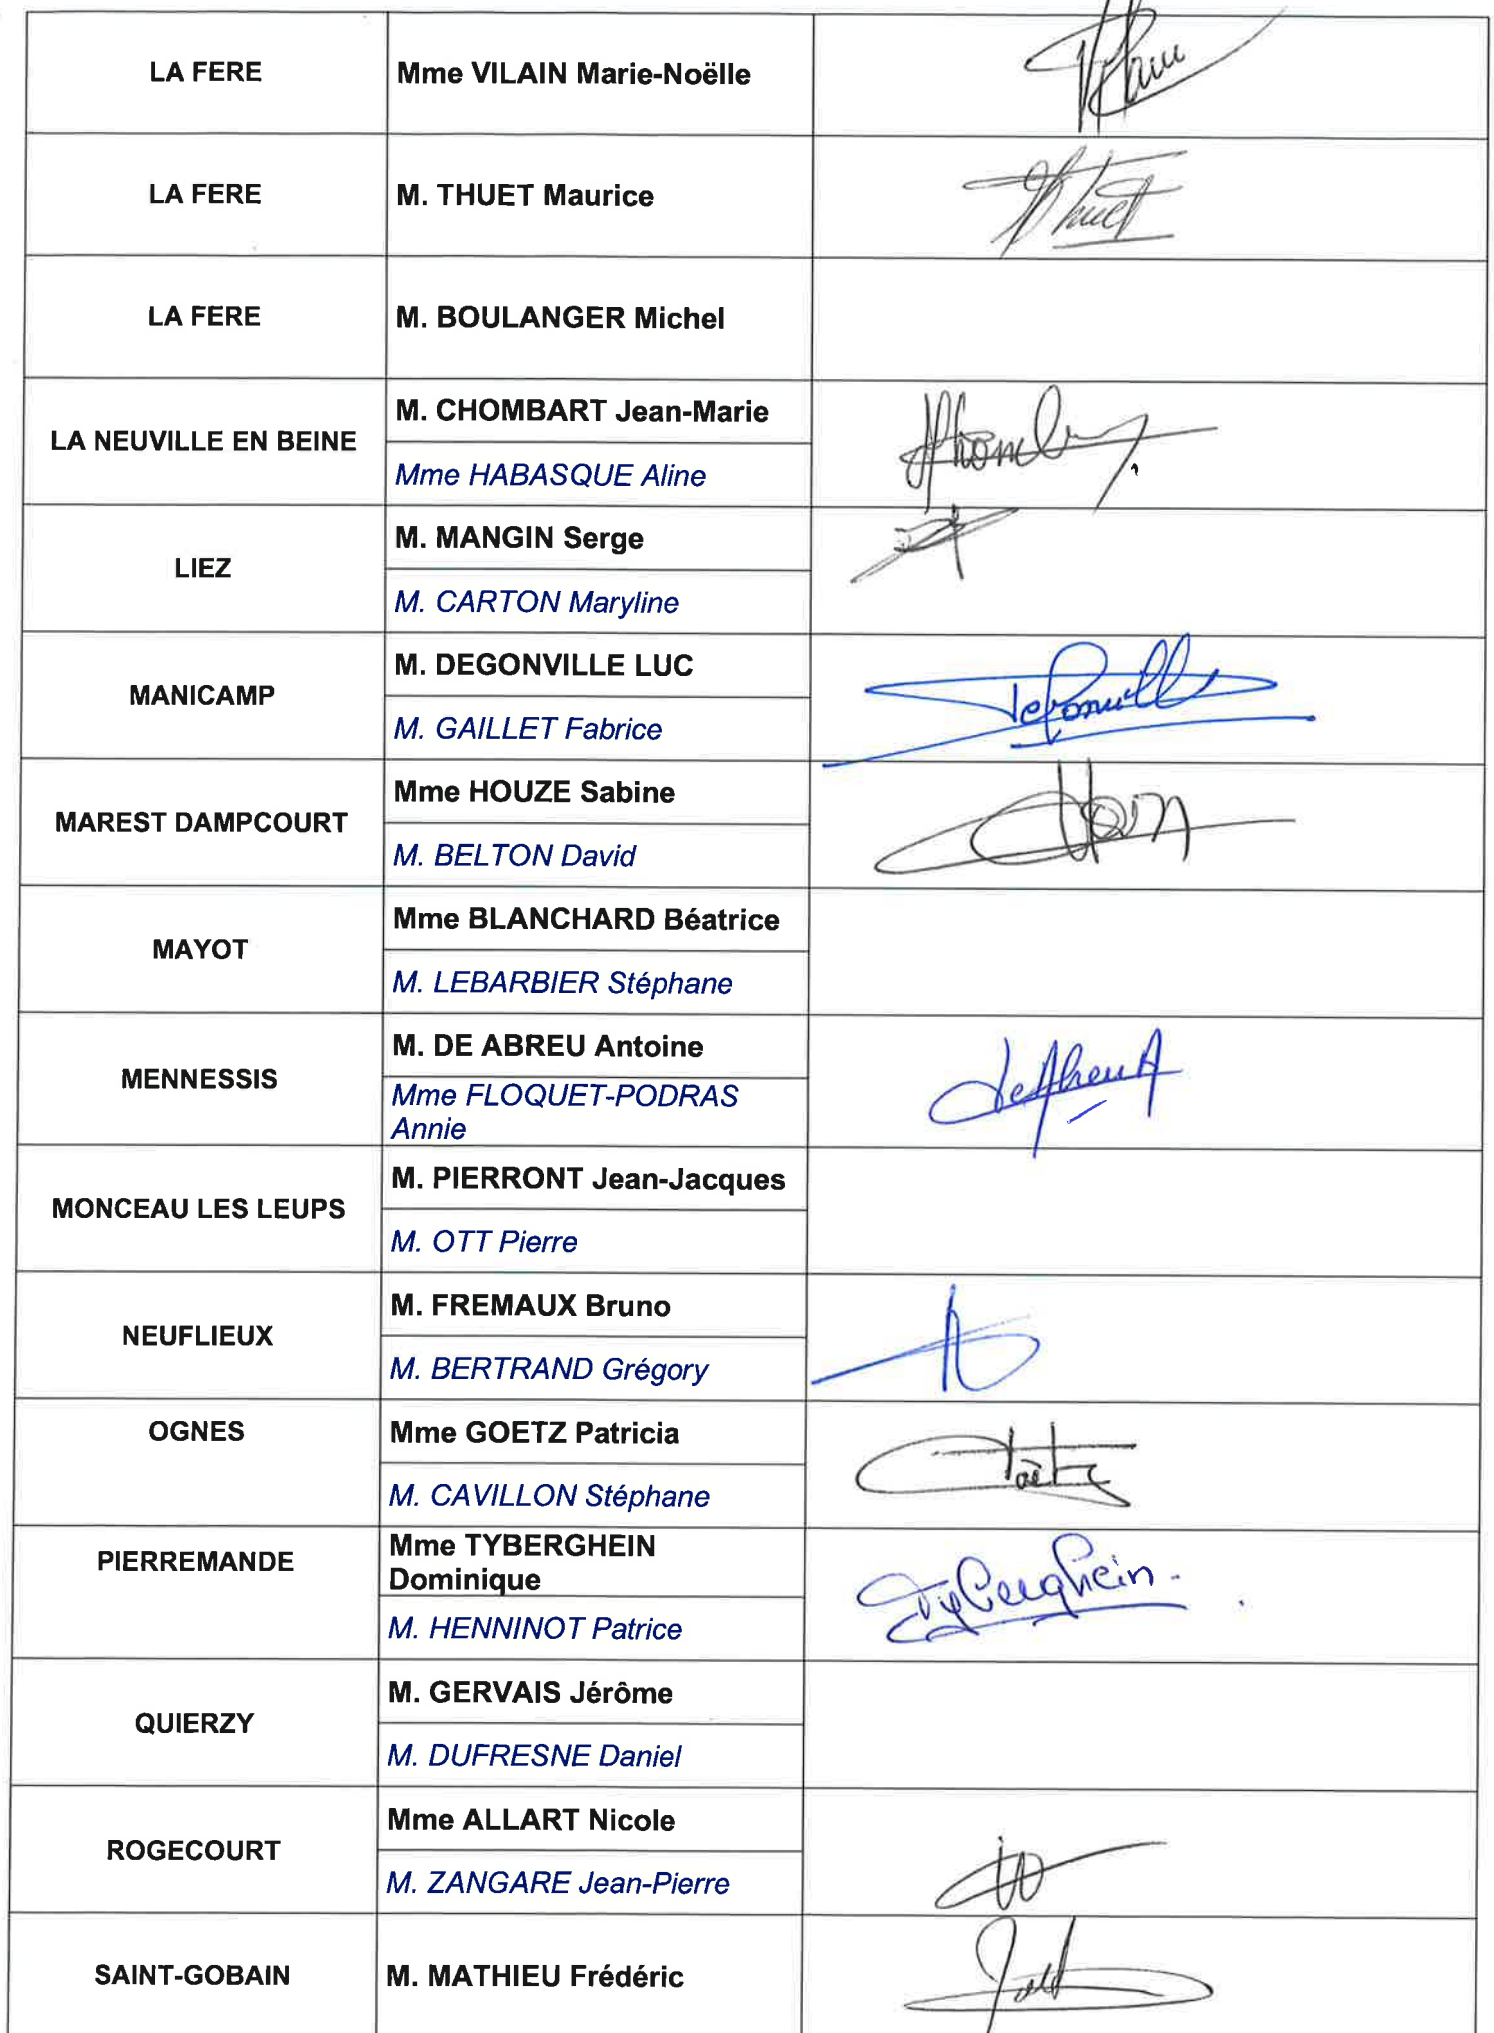 LA FERE
Mme VILAIN Marie-Noëlle
LA FERE
M. THUET Maurice
Thuet
LA FERE
M. BOULANGER Michel
LA NEUVILLE EN BEINE
M. CHOMBART Jean-Marie
Mme HABASQUE Aline
LIEZ
M. MANGIN Serge
M. CARTON Maryline
MANICAMP
M. DEGONVILLE LUC
M. GAILLET Fabrice
MAREST DAMPCOURT
Mme HOUZE Sabine
M. BELTON David
MAYOT
Mme BLANCHARD Béatrice
M. LEBARBIER Stéphane
MENNESSIS
M. DE ABREU Antoine
Mme FLOQUET-PODRAS
Annie
De Abreu A
MONCEAU LES LEUPS
M. PIERRONT Jean-Jacques
M. OTT Pierre
NEUFLIEUX
M. FREMAUX Bruno
M. BERTRAND Grégory
OGNES
Mme GOETZ Patricia
M. CAVILLON Stéphane
PIERREMANDE
Mme TYBERGHEIN
Dominique
M. HENNINOT Patrice
Tyberghein
QUIERZY
M. GERVAIS Jérôme
M. DUFRESNE Daniel
ROGECOURT
Mme ALLART Nicole
M. ZANGARE Jean-Pierre
SAINT-GOBAIN
M. MATHIEU Frédéric